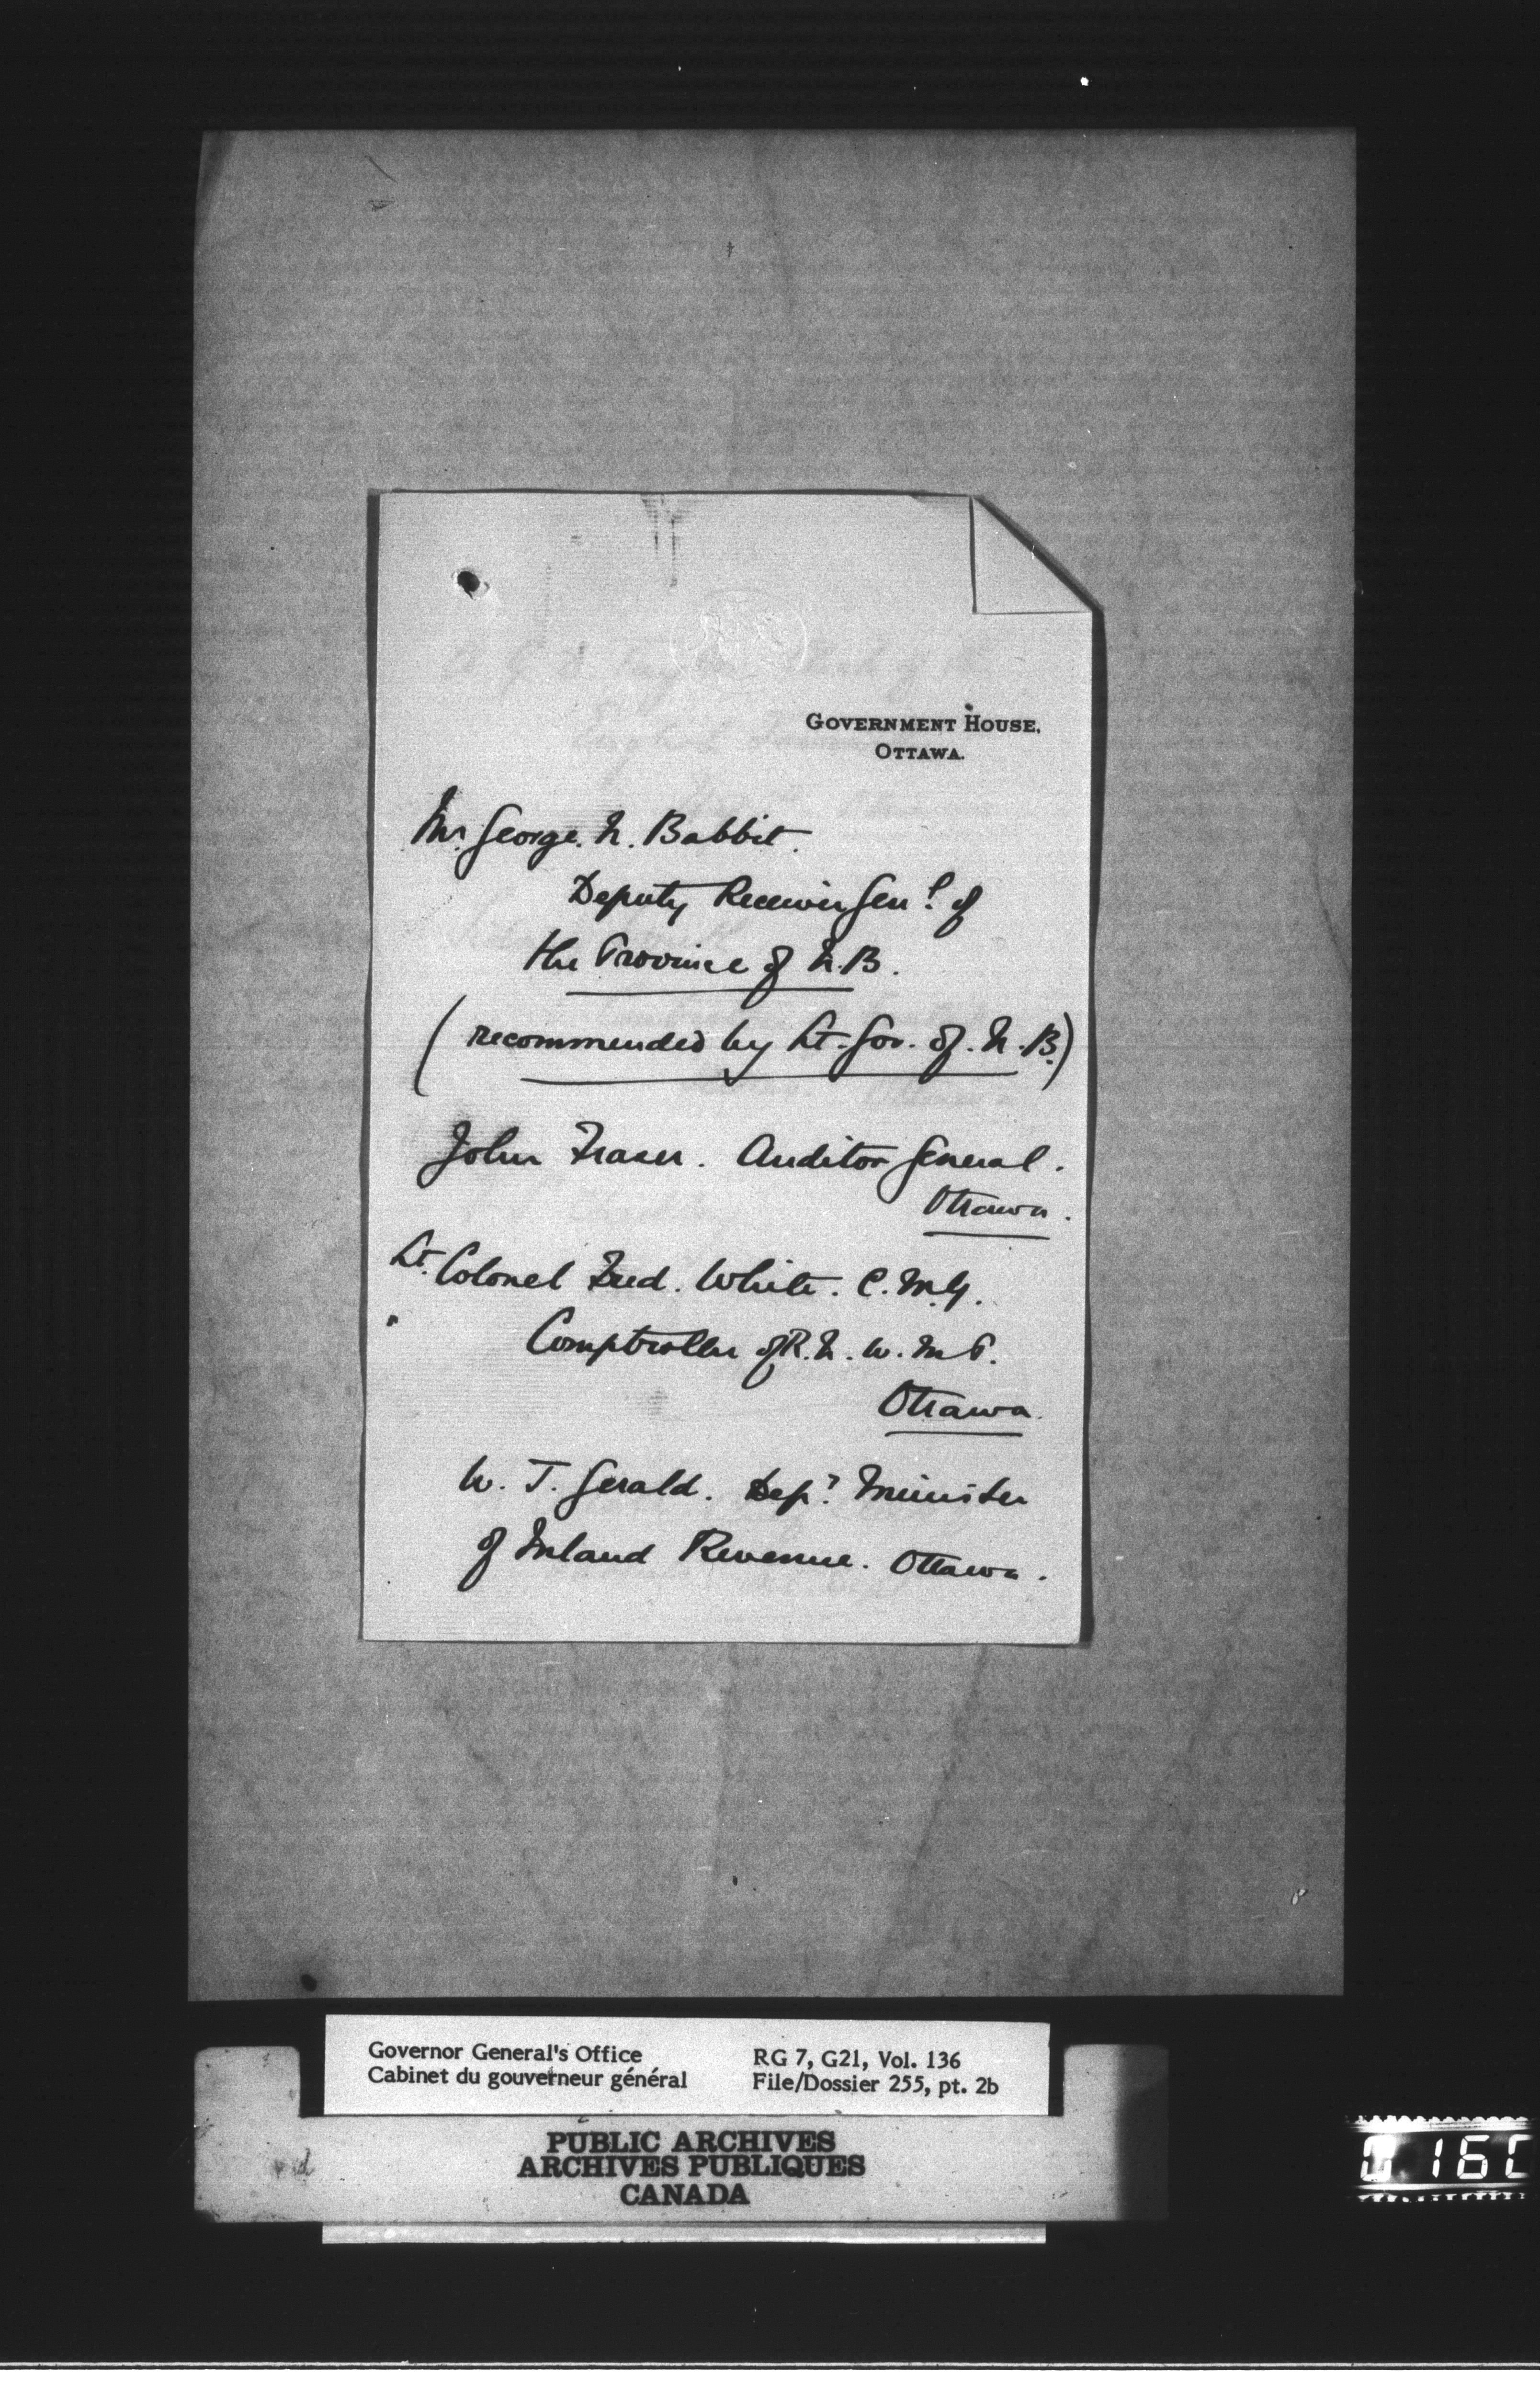 GOVERNMENT HOUSE,
OTTAWA.
Mr. George. N. Babbit.
Deputy Receiver Genl. of
the Province of N.B.
(recommended by Lt. Gov. of. N.B.)
John Fraser. Auditor General.
Ottawa.
Lt. Colonel Fred. White. C.M.G.
Comptroller of R.N.W.M.P.
Ottawa.
W. T. Gerald. Dept. Minister
of Inland Revenue. Ottawa.
Governor General's Office
Cabinet du gouverneur général
RG 7, G21, Vol. 136
File/Dossier 255, pt. 2b
PUBLIC ARCHIVES
ARCHIVES PUBLIQUES
CANADA